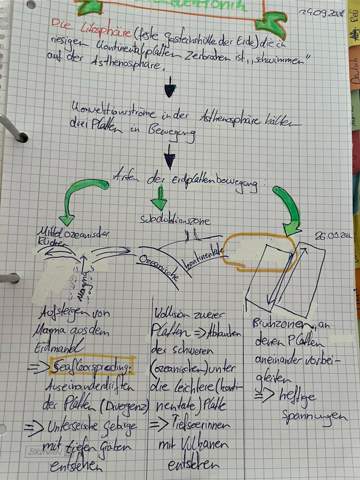 24.09.2021
Die Litosphäre (feste gesteinshülle der Erde) die in
riesigen Kontinentalplatten zerbrochen ist, „schwimmen"
auf der Asthenosphäre.
in der Asthenosphäre halten
Platten in Bewegung
Arten der Erdplattenbewegung
Subduktionszone
Mittelozeanischer
Rücken
Ozeanische
kontinentale
Aufsteigen von
Magma aus dem
Erdmantel
=> Seafloorspreading:
Auseinanderdriften
der Platten (Divergenz)
=> Unterseeische Gebirge
mit tiefen Gräben
entstehen
Kollision zweier
Platten => Abtauchen
der schweren
(ozeanischen) unter
die leichtere (konti-
nentale) Platte
=> Tiefseerinnen
mit Vulkanen
entstehen
Bruchzonen, an
denen Platten
aneinander vorbei-
gleiten
=> heftige
Spannungen